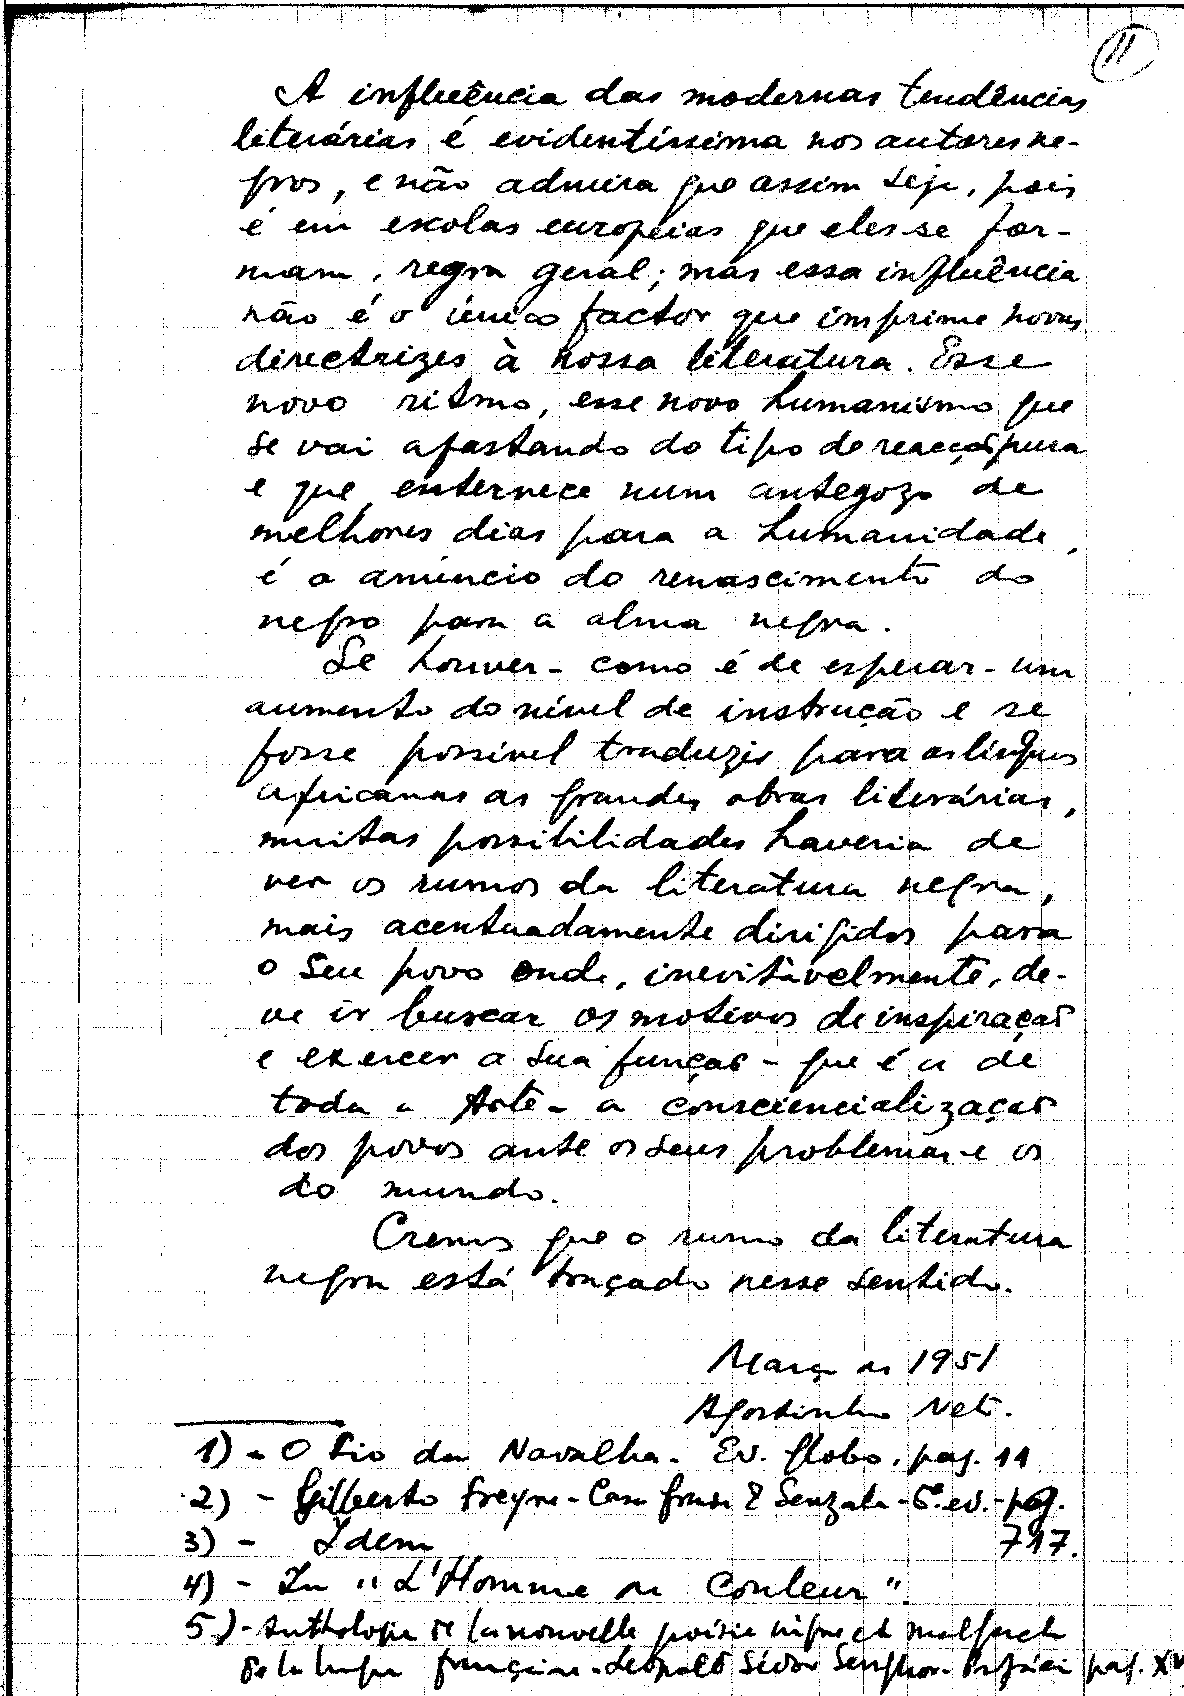 11
A influência das modernas tendências
literárias é evidentíssima nos autores ne-
gros, e não admira que assim seja, pois
é em escolas europeias que eles se for-
mam, regra geral; mas essa influência
não é o único factor que imprime novas
directrizes à nossa literatura. Esse
novo ritmo, esse novo humanismo que
se vai afastando do tipo de reacção pura
e que enternece num antegozo de
melhores dias para a humanidade,
é o anúncio do renascimento do
negro para a alma negra.
Se houver - como é de esperar - um
aumento do nível de instrução e se
fosse possível traduzir para as línguas
africanas as grandes obras literárias,
muitas possibilidades haveria de
ver os rumos da literatura negra,
mais acentuadamente dirigidos para
o seu povo onde, inevitàvelmente, de-
ve ir buscar os motivos de inspiração
e exercer a sua função - que é a de
toda a Arte - a consciencialização
dos povos ante os seus problemas e os
do mundo.
Cremos que o rumo da literatura
negra está traçado nesse sentido.
Março de 1951
Agostinho Neto.
1) - O Fio da Navalha - Ed. Globo, pag. 11
2) - Gilberto Freyre - Casa Grande & Senzala - 6ª ed. - pág.
3) - Idem 717.
4) - In "L'Homme de Couleur".
5) - Anthologie de la nouvelle poésie nègre et malgache
de la langue française - Léopold Sédar Senghor - Prefácio pag.